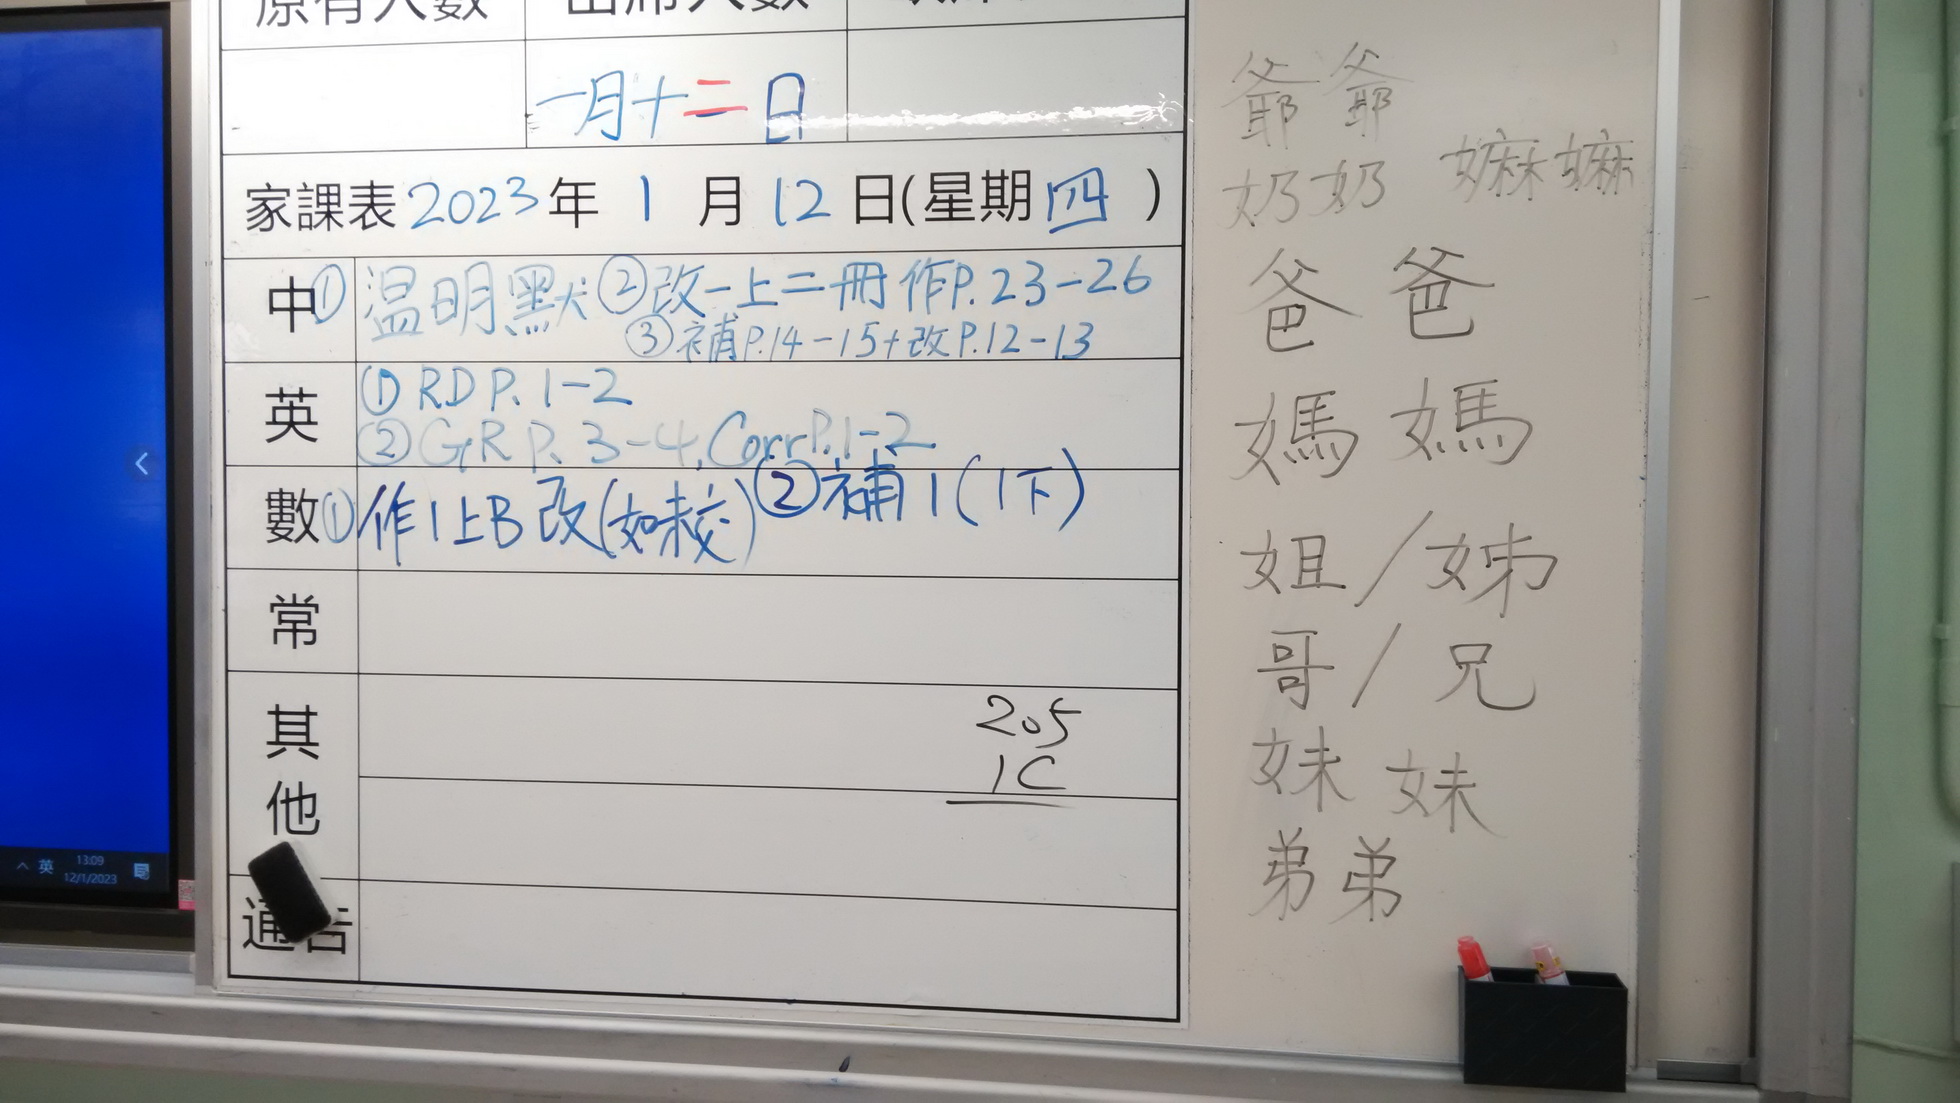 原有人數 出席人數
一月十二日
家課表 2023 年 1 月 12 日(星期 四 )
中 ① 温明默 ② 改一上二冊 作P.23-26
③ 補P.14-15+改P.12-13
英 ① RD P. 1-2
② GR P. 3-4, Corr P.1-2
數 ① 作1上B 改(如未交) ② 補1(1下)
常
其他
205
1C
通告
爺爺
奶奶 嫲嫲
爸爸
媽媽
姐/姊
哥/兄
妹妹
弟弟
英 13:09
12/1/2023